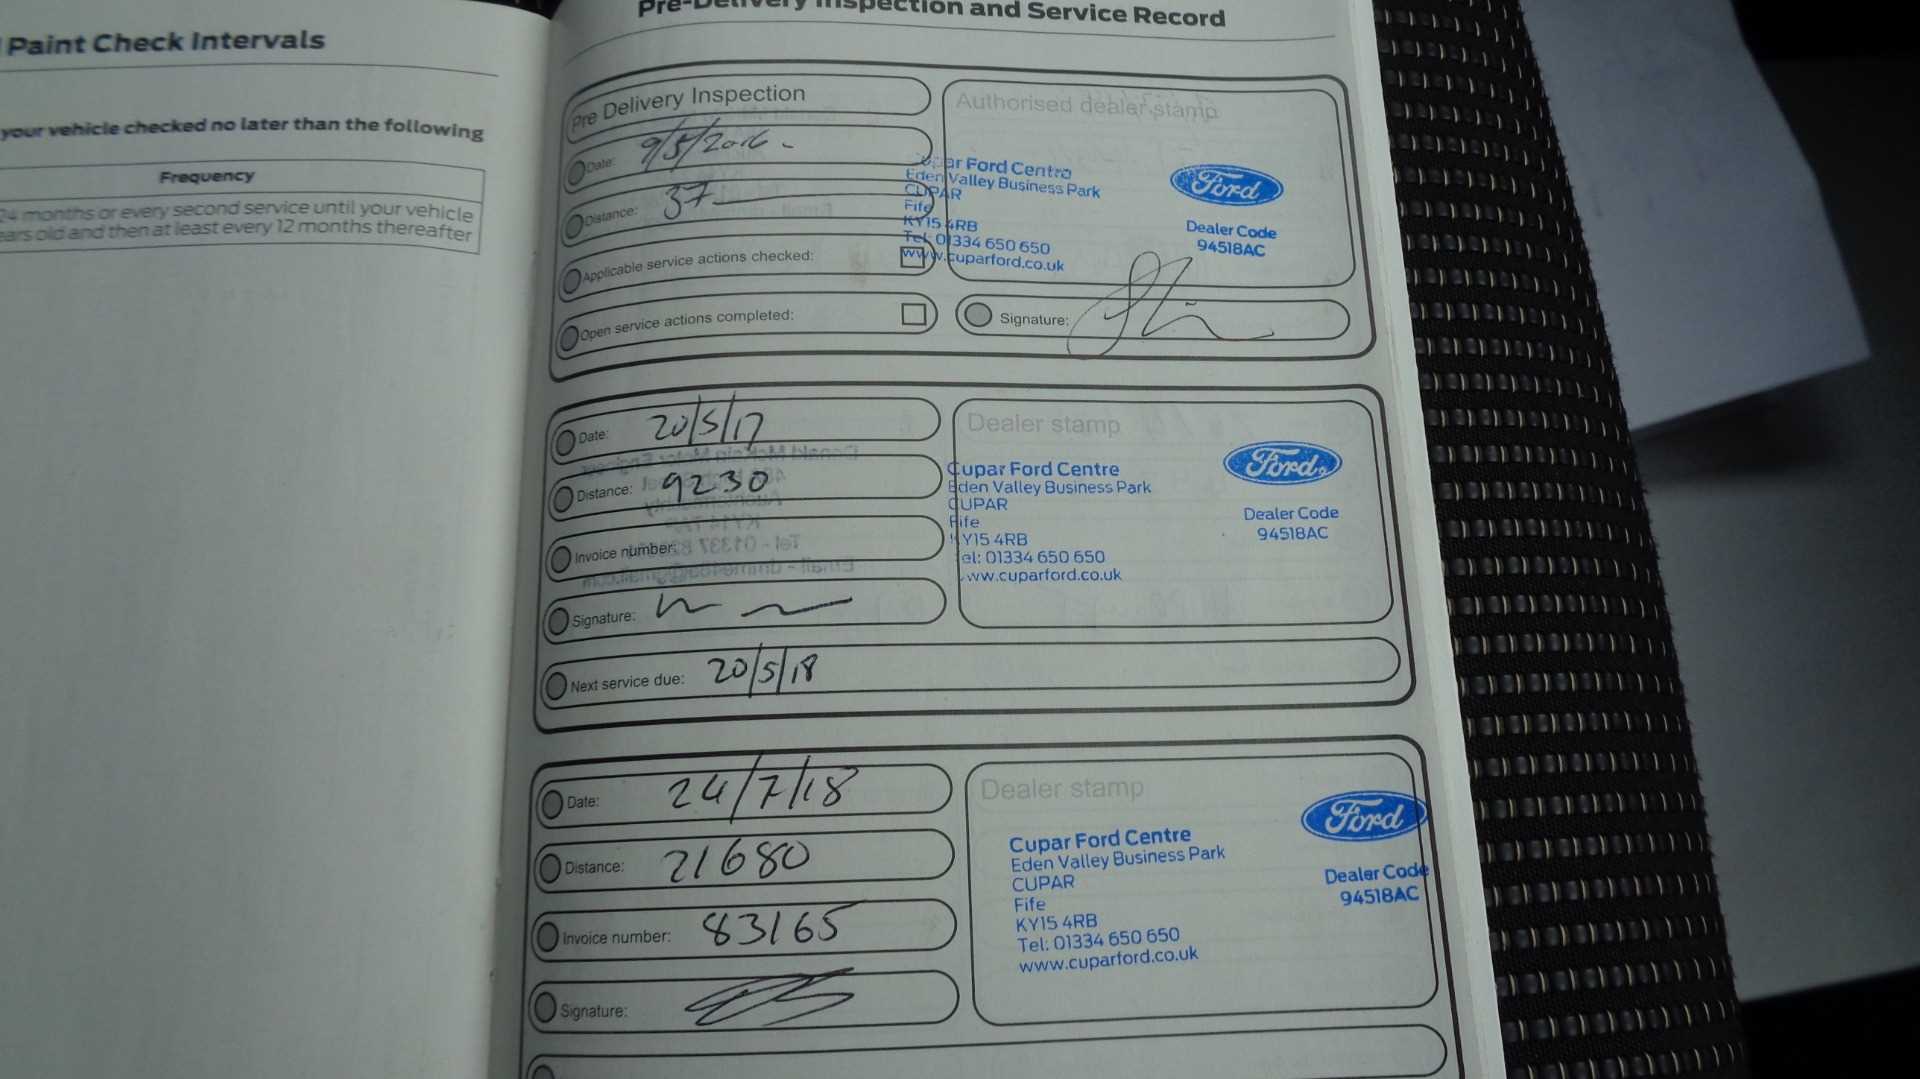 Paint Check Intervals
your vehicle checked no later than the following
Frequency
24 months or every second service until your vehicle
ears old and then at least every 12 months thereafter
Pre-Delivery Inspection and Service Record
Pre Delivery Inspection
Date: 9/5/2016
Distance: 37
Applicable service actions checked:
Open service actions completed:
Authorised dealer stamp
Cupar Ford Centre
Eden Valley Business Park
CUPAR
Fife
KY15 4RB
Tel: 01334 650 650
www.cuparford.co.uk
Ford
Dealer Code
94518AC
Signature:
Date: 20/5/17
Distance: 9230
Invoice number:
Signature:
Next service due: 20/5/18
Dealer stamp
Cupar Ford Centre
Eden Valley Business Park
CUPAR
Fife
KY15 4RB
Tel: 01334 650 650
www.cuparford.co.uk
Ford
Dealer Code
94518AC
Date: 24/7/18
Distance: 21680
Invoice number: 83165
Signature:
Dealer stamp
Cupar Ford Centre
Eden Valley Business Park
CUPAR
Fife
KY15 4RB
Tel: 01334 650 650
www.cuparford.co.uk
Ford
Dealer Code
94518AC